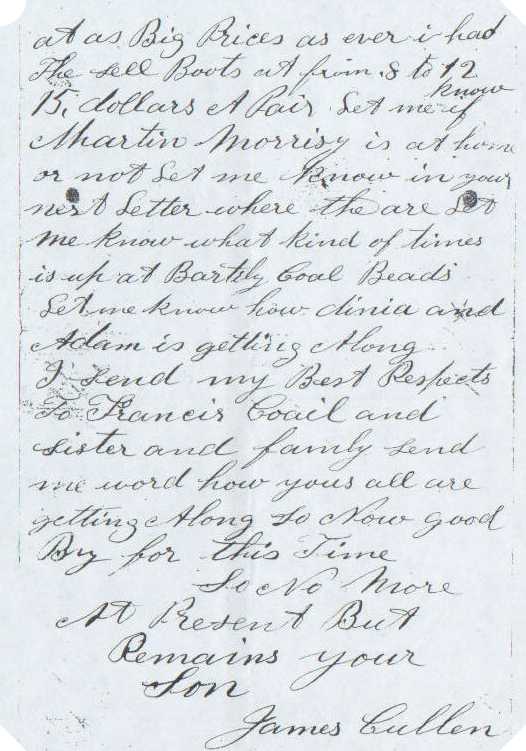 at as Big Prices as ever i had
The sell Boots at from 8 to 12
know
15, dollars A Pair Let me if
Martin Morrisy is at home
or not Let me know in your
next Letter where the are Let
me know what kind of times
is up at Bartsly Coal Beads
Let me know how dinia and
Adam is getting Along
I send my Best Respects
To Francis Coail and
sister and famly send
me word how yous all are
getting Along So Now good
By for this Time
So No More
At Present But
Remains your
Son
James Cullen